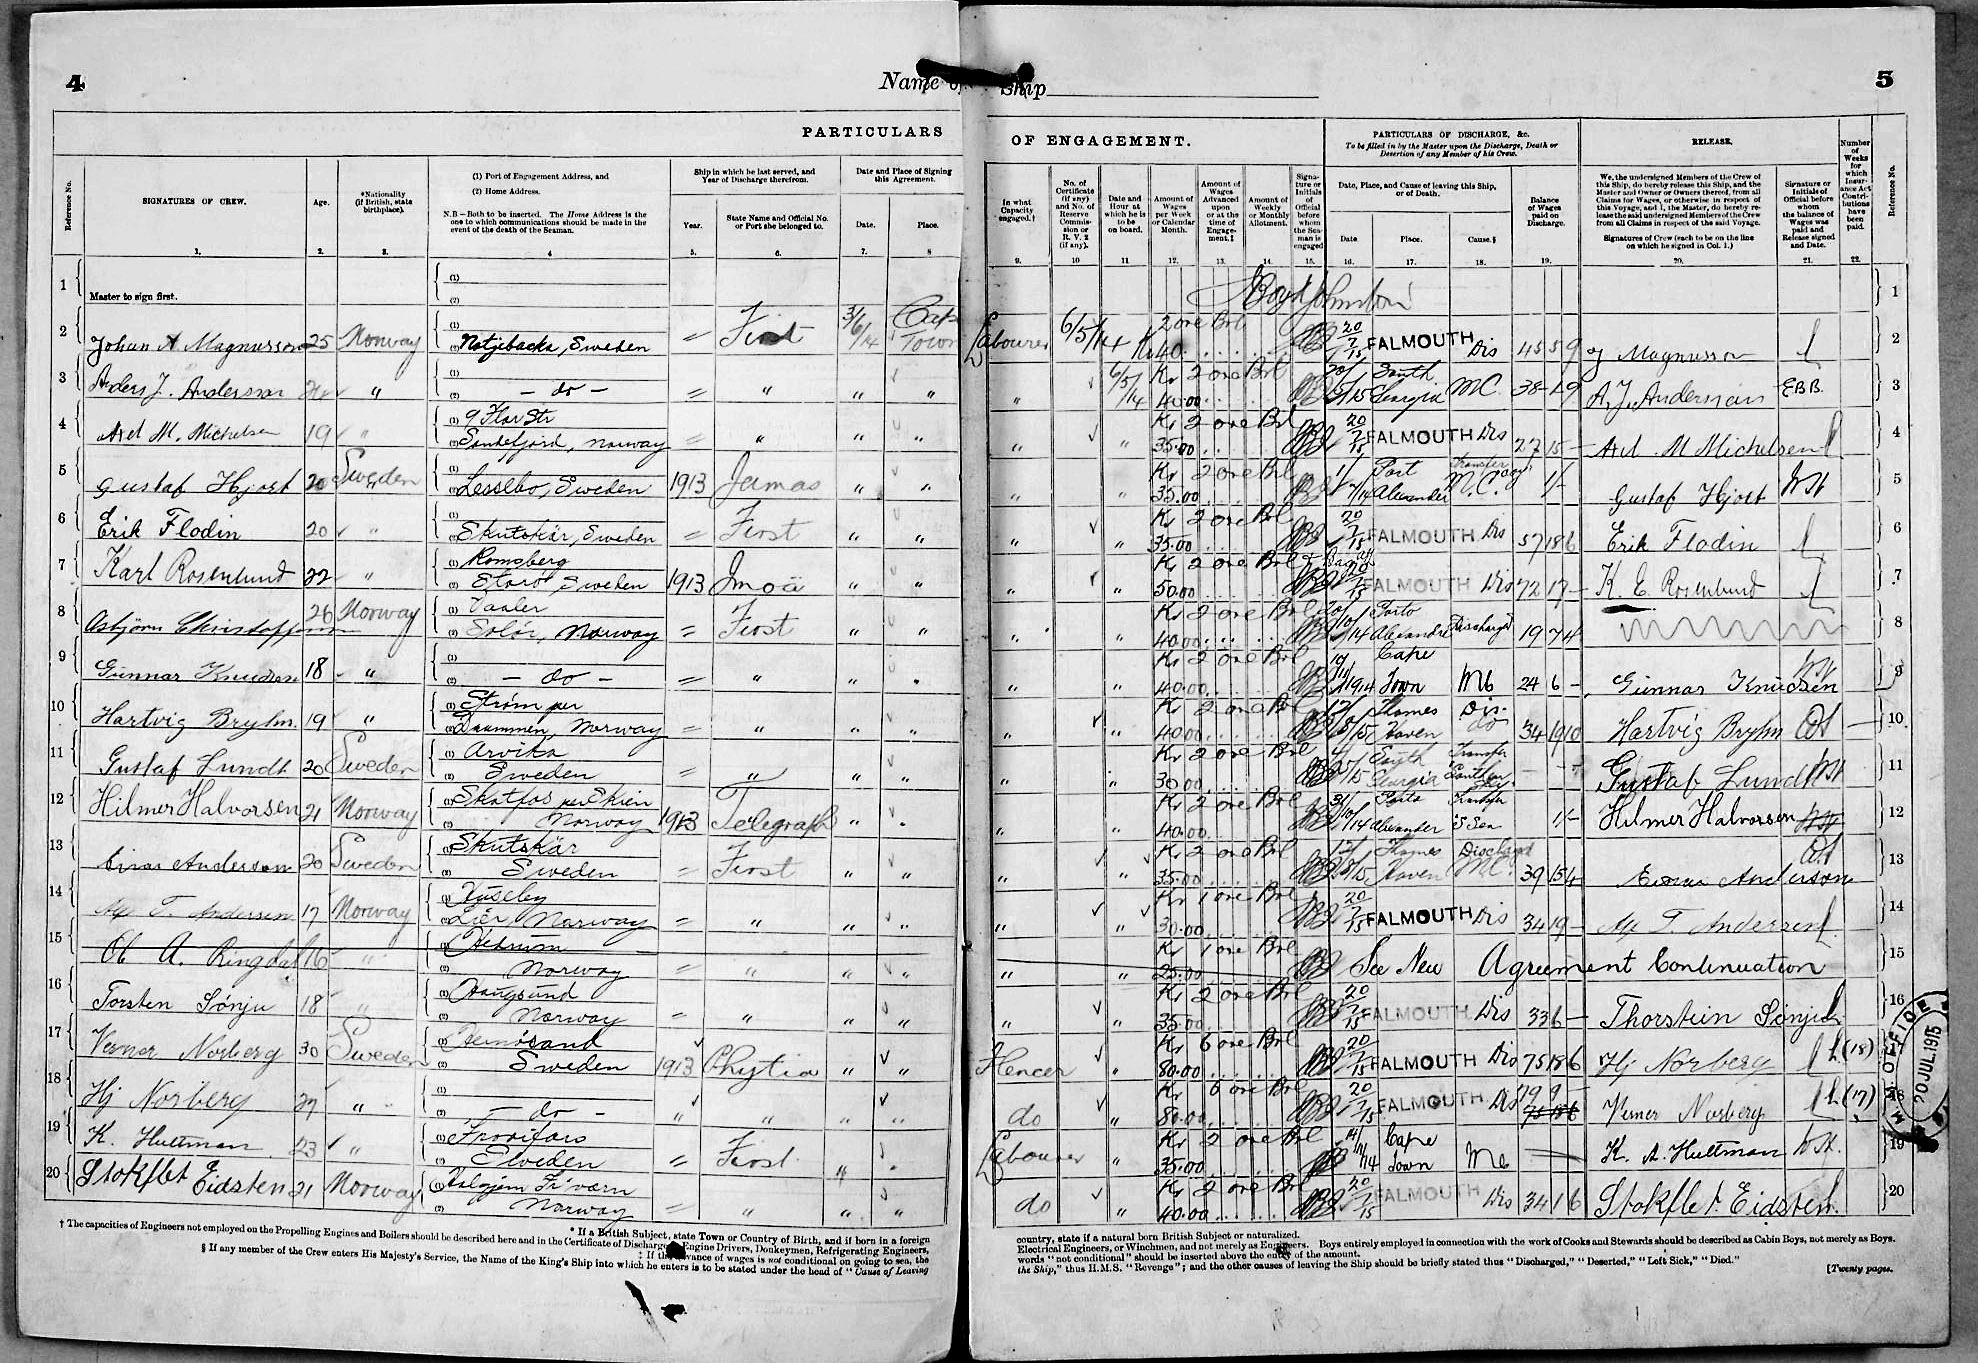 4
Name of Ship
5
PARTICULARS OF ENGAGEMENT.
PARTICULARS OF DISCHARGE, &c.
To be filled in by the Master upon the Discharge, Death or
Desertion of any Member of his Crew.
RELEASE.
Number of Weeks for which Insurance Act Contributions have been paid.
Reference No.
SIGNATURES OF CREW.
Age.
*Nationality (if British, state birthplace).
(1) Port of Engagement Address, and
(2) Home Address.
N.B.—Both to be inserted. The Home Address is the
one to which communications should be made in the
event of the death of the Seaman.
Ship in which he last served, and
Year of Discharge therefrom.
Year.
State Name and Official No.
or Port she belonged to.
Date and Place of Signing
this Agreement.
Date.
Place.
In what Capacity engaged.†
No. of Certificate (if any) and No. of Reserve Commission or R. V. 2 (if any).
Date and Hour at which he is to be on board.
Amount of Wages per Week or Calendar Month.
Amount of Wages Advanced upon or at the time of Engagement.‡
Amount of Weekly or Monthly Allotment.
Signature or Initials of Official before whom the Seaman is engaged
Date, Place, and Cause of leaving this Ship,
or of Death.
Date.
Place.
Cause.§
Balance of Wages paid on Discharge.
We, the undersigned Members of the Crew of
this Ship, do hereby release this Ship, and the
Master and Owner or Owners thereof, from all
Claims for Wages, or otherwise in respect of
this Voyage, and I, the Master, do hereby re-
lease the said undersigned Members of the Crew
from all Claims in respect of the said Voyage.
Signatures of Crew (each to be on the line
on which he signed in Col. 1.)
Signature or Initials of Official before whom the balance of Wages was paid and Release signed and Date.
Reference No.
1. 2. 3. 4 5. 6. 7. 8 9. 10 11. 12. 13. 14. 15. 16. 17. 18. 19. 20. 21. 22.
1 Master to sign first. (1) (2) Johnston 1
2 Johan A Magnusson 25 Norway Sweden First 3/6/14 Cape Town Labourer 6/5/14 2 ore Brl Kr 40 20/7/15 FALMOUTH Dis 45 5 9 Magnusson 2
3 Anders J. Anderson " - do - " " " " 6/5/14 Kr 2 ore Brl 40.00 South Georgia M.C. 38 - 19 A. J. Anderson E.B.B. 3
4 Axel M. Michelsen 19 " 9 Flor Str Sandefjord, Norway " " " " " Kr 2 ore Brl 35.00 20/7/15 FALMOUTH Dis 27 15 - Axel M Michelsen 4
5 Gustaf Hjort 20 Sweden Lesslbo, Sweden 1913 Jamas " " " " Kr 2 ore Brl 35.00 Port Alexander transfer M.C. 1/- Gustaf Hjort 5
6 Erik Flodin 20 " Skutskär, Sweden First " " " " Kr 2 ore Brl 35.00 20/7/15 FALMOUTH Dis 57 18 6 Erik Flodin 6
7 Karl Rosenlund 22 " Sweden 1913 " " " " Kr 2 ore Brl 50.00 20/7/15 FALMOUTH Dis 72 17 - K. E. Rosenlund 7
8 Asbjörn Christoffersen 26 Norway Vaaler Solör, Norway First " " " " Kr 2 ore Brl 40.00 Porto Alexandre Discharged 19 7 4 8
9 Gunnar Knudsen 18 " - do - " " " " " Kr 2 ore Brl 40.00 1914 Cape Town MC 24 6 - Gunnar Knudsen 9
10 Hartvig Bryhn 19 " Strøm per Drammen, Norway " " " " " Kr 2 ore Brl 40.00 Thames Haven Dis. 34 19 10 Hartvig Bryhn 10
11 Gustaf Lundt 20 Sweden Arvika Sweden " " " " " Kr 2 ore Brl 30.00 South Georgia Transfer Southern Sky Gustaf Lundt 11
12 Hilmer Halvorsen 21 Norway Skotfos per Skien Norway 1913 Telegraph " " " " Kr 2 ore Brl 40.00 Porto Alexander Transfer S Sea 1/- Hilmer Halvorsen 12
13 Einar Anderson 20 Sweden Skutskär Sweden First " " " " Kr 2 ore Brl 35.00 Thames Haven Discharged M.C. 39 15 4 Einar Anderson 13
14 Alf T. Andersen 17 Norway Huseby Lier Norway " " " " " Kr 1 ore Brl 30.00 20/7/15 FALMOUTH Dis 34 19 - Alf T Andersen 14
15 Ol A. Ringdal 16 " Hedrum Norway " " " " " Kr 1 ore Brl 25.00 See New Agreement Continuation 15
16 Torsten Sönju 18 " Haugsund Norway " " " " " Kr 2 ore Brl 35.00 20/7/15 FALMOUTH Dis 33 6 - Thorstein Sönju 16
17 Verner Norberg 30 Sweden Hernösand Sweden 1913 Clytia " " Flencer " Kr 6 ore Brl 80.00 20/7/15 FALMOUTH Dis 75 18 6 Hj Norberg (18) 17
18 Hj Norberg 27 " - do - " " " " do " Kr 6 ore Brl 80.00 20/7/15 FALMOUTH Dis 79 9 75 18 6 Verner Norberg (17) 18
19 K. Hultman 23 " Sweden First " " Labourer " Kr 2 ore Brl 35.00 Cape Town MC K. A. Hultman 19
20 Stokflet Eidsten 21 Norway Norway " " " do " Kr 2 ore Brl 40.00 20/7/15 FALMOUTH Dis 34 16 Stokflet Eidsten 20
M M OFFICE
20 JUL 1915
* If a British Subject, state Town or Country of Birth, and if born in a foreign country, state if a natural born British Subject or naturalized.
† The capacities of Engineers not employed on the Propelling Engines and Boilers should be described here and in the Certificate of Discharge, Engine Drivers, Donkeymen, Refrigerating Engineers, Electrical Engineers, or Winchmen, and not merely as Engineers. Boys entirely employed in connection with the work of Cooks and Stewards should be described as Cabin Boys, not merely as Boys.
‡ If the advance of wages is not conditional on going to sea, the words "not conditional" should be inserted above the entry of the amount.
§ If any member of the Crew enters His Majesty's Service, the Name of the King's Ship into which he enters is to be stated under the head of "Cause of Leaving the Ship," thus H.M.S. "Revenge"; and the other causes of leaving the Ship should be briefly stated thus "Discharged," "Deserted," "Left Sick," "Died."
[Twenty pages.